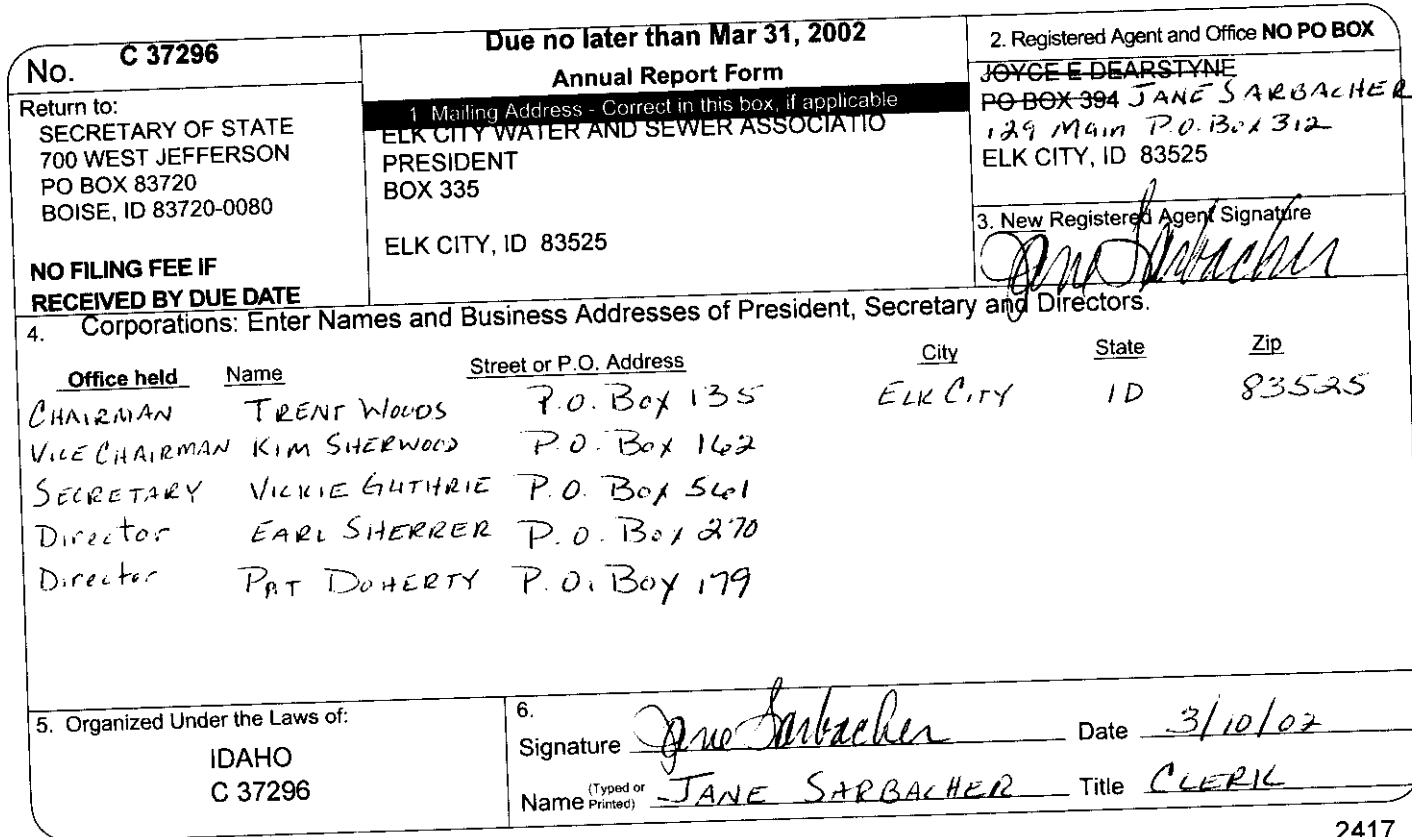 No. C 37296
Return to:
SECRETARY OF STATE
700 WEST JEFFERSON
PO BOX 83720
BOISE, ID 83720-0080
NO FILING FEE IF
RECEIVED BY DUE DATE
Due no later than Mar 31, 2002
Annual Report Form
1 Mailing Address - Correct in this box, if applicable
ELK CITY WATER AND SEWER ASSOCIATIO
PRESIDENT
BOX 335
ELK CITY, ID 83525
2. Registered Agent and Office NO PO BOX
JOYCE E DEARSTYNE
PO BOX 394 JANE SARBACHER
129 Main P.O. Box 312
ELK CITY, ID 83525
3. New Registered Agent Signature
Jane Sarbacher
4. Corporations: Enter Names and Business Addresses of President, Secretary and Directors.
Office held Name Street or P.O. Address City State Zip
CHAIRMAN TRENT WOODS P.O. Box 135 ELK CITY ID 83525
VICE CHAIRMAN KIM SHERWOOD P.O. Box 162
SECRETARY VICKIE GUTHRIE P.O. Box 561
Director EARL SHERRER P.O. Box 270
Director PAT DOHERTY P.O. Box 179
5. Organized Under the Laws of:
IDAHO
C 37296
6.
Signature Jane Sarbacher Date 3/10/02
Name (Typed or Printed) JANE SARBACHER Title CLERK
2417